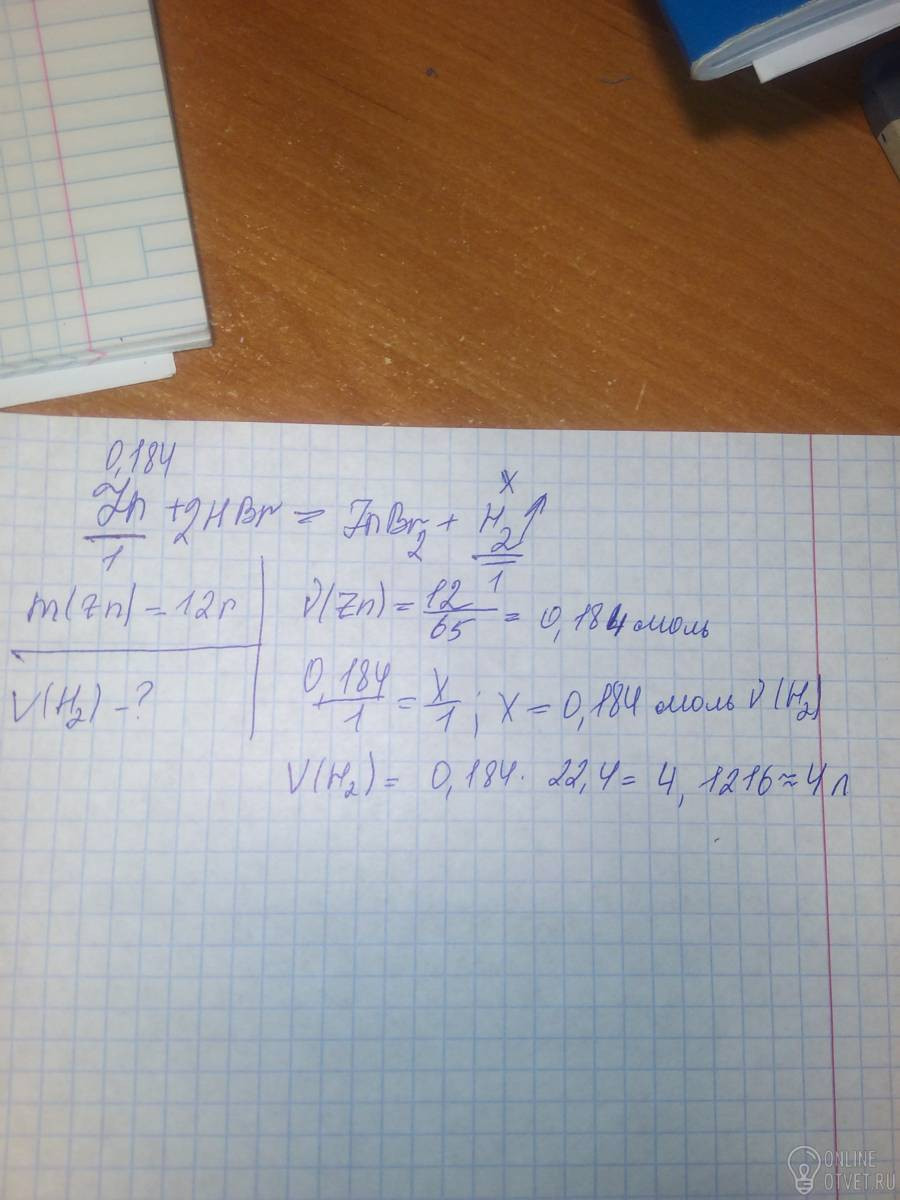 0,184 x
Zn + 2HBr = ZnBr2 + H2↑
1 1
m(Zn) = 12г
V(H2) - ?
ν(Zn) = 12/65 = 0,184 моль
0,184/1 = x/1; x = 0,184 моль ν(H2)
V(H2) = 0,184 · 22,4 = 4,1216 ≈ 4л
ONLINE
OTVET.RU